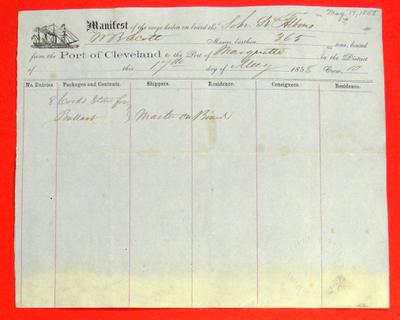 May 17, 1858
Manifest of the cargo laden on board the Schr St Albans
W B Scott Master, burthen 265 tons, bound
from the Port of Cleveland to the Port of Marquette in the District
of this 17th day of May 1858 Crew 10
No. Entries Packages and Contents. Shippers. Residence. Consignees. Residence.
8 Cords Stone for
Ballast Master on Board